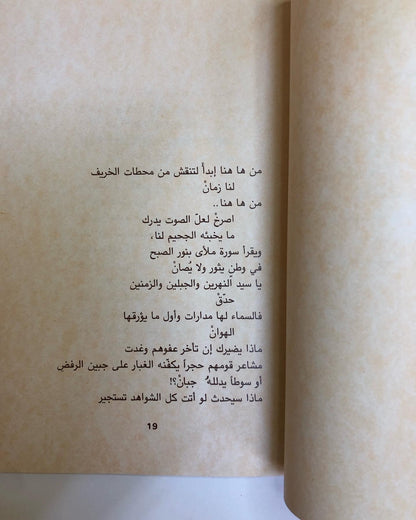 من ها هنا إبدأ لتنقش من محطات الخريف
لنا زمانْ
من ها هنا..
اصرخْ لعلّ الصوت يدرك
ما يخبئه الجحيم لنا،
ويقرأ سورة ملأى بنور الصبح
في وطنٍ يثور ولا يُصانْ
يا سيد النهرين والجبلين والزمنين
حدّقْ
فالسماء لها مدارات وأول ما يؤرقها
الهوانْ
ماذا يضيرك إن تأخر عفوهم وغدت
مشاعر قومهم حجراً يكفّنه الغبار على جبين الرفضِ
أو سوطاً يدلّلهُ جبانْ؟!
ماذا سيحدث لو أتت كل الشواهد تستجير
19